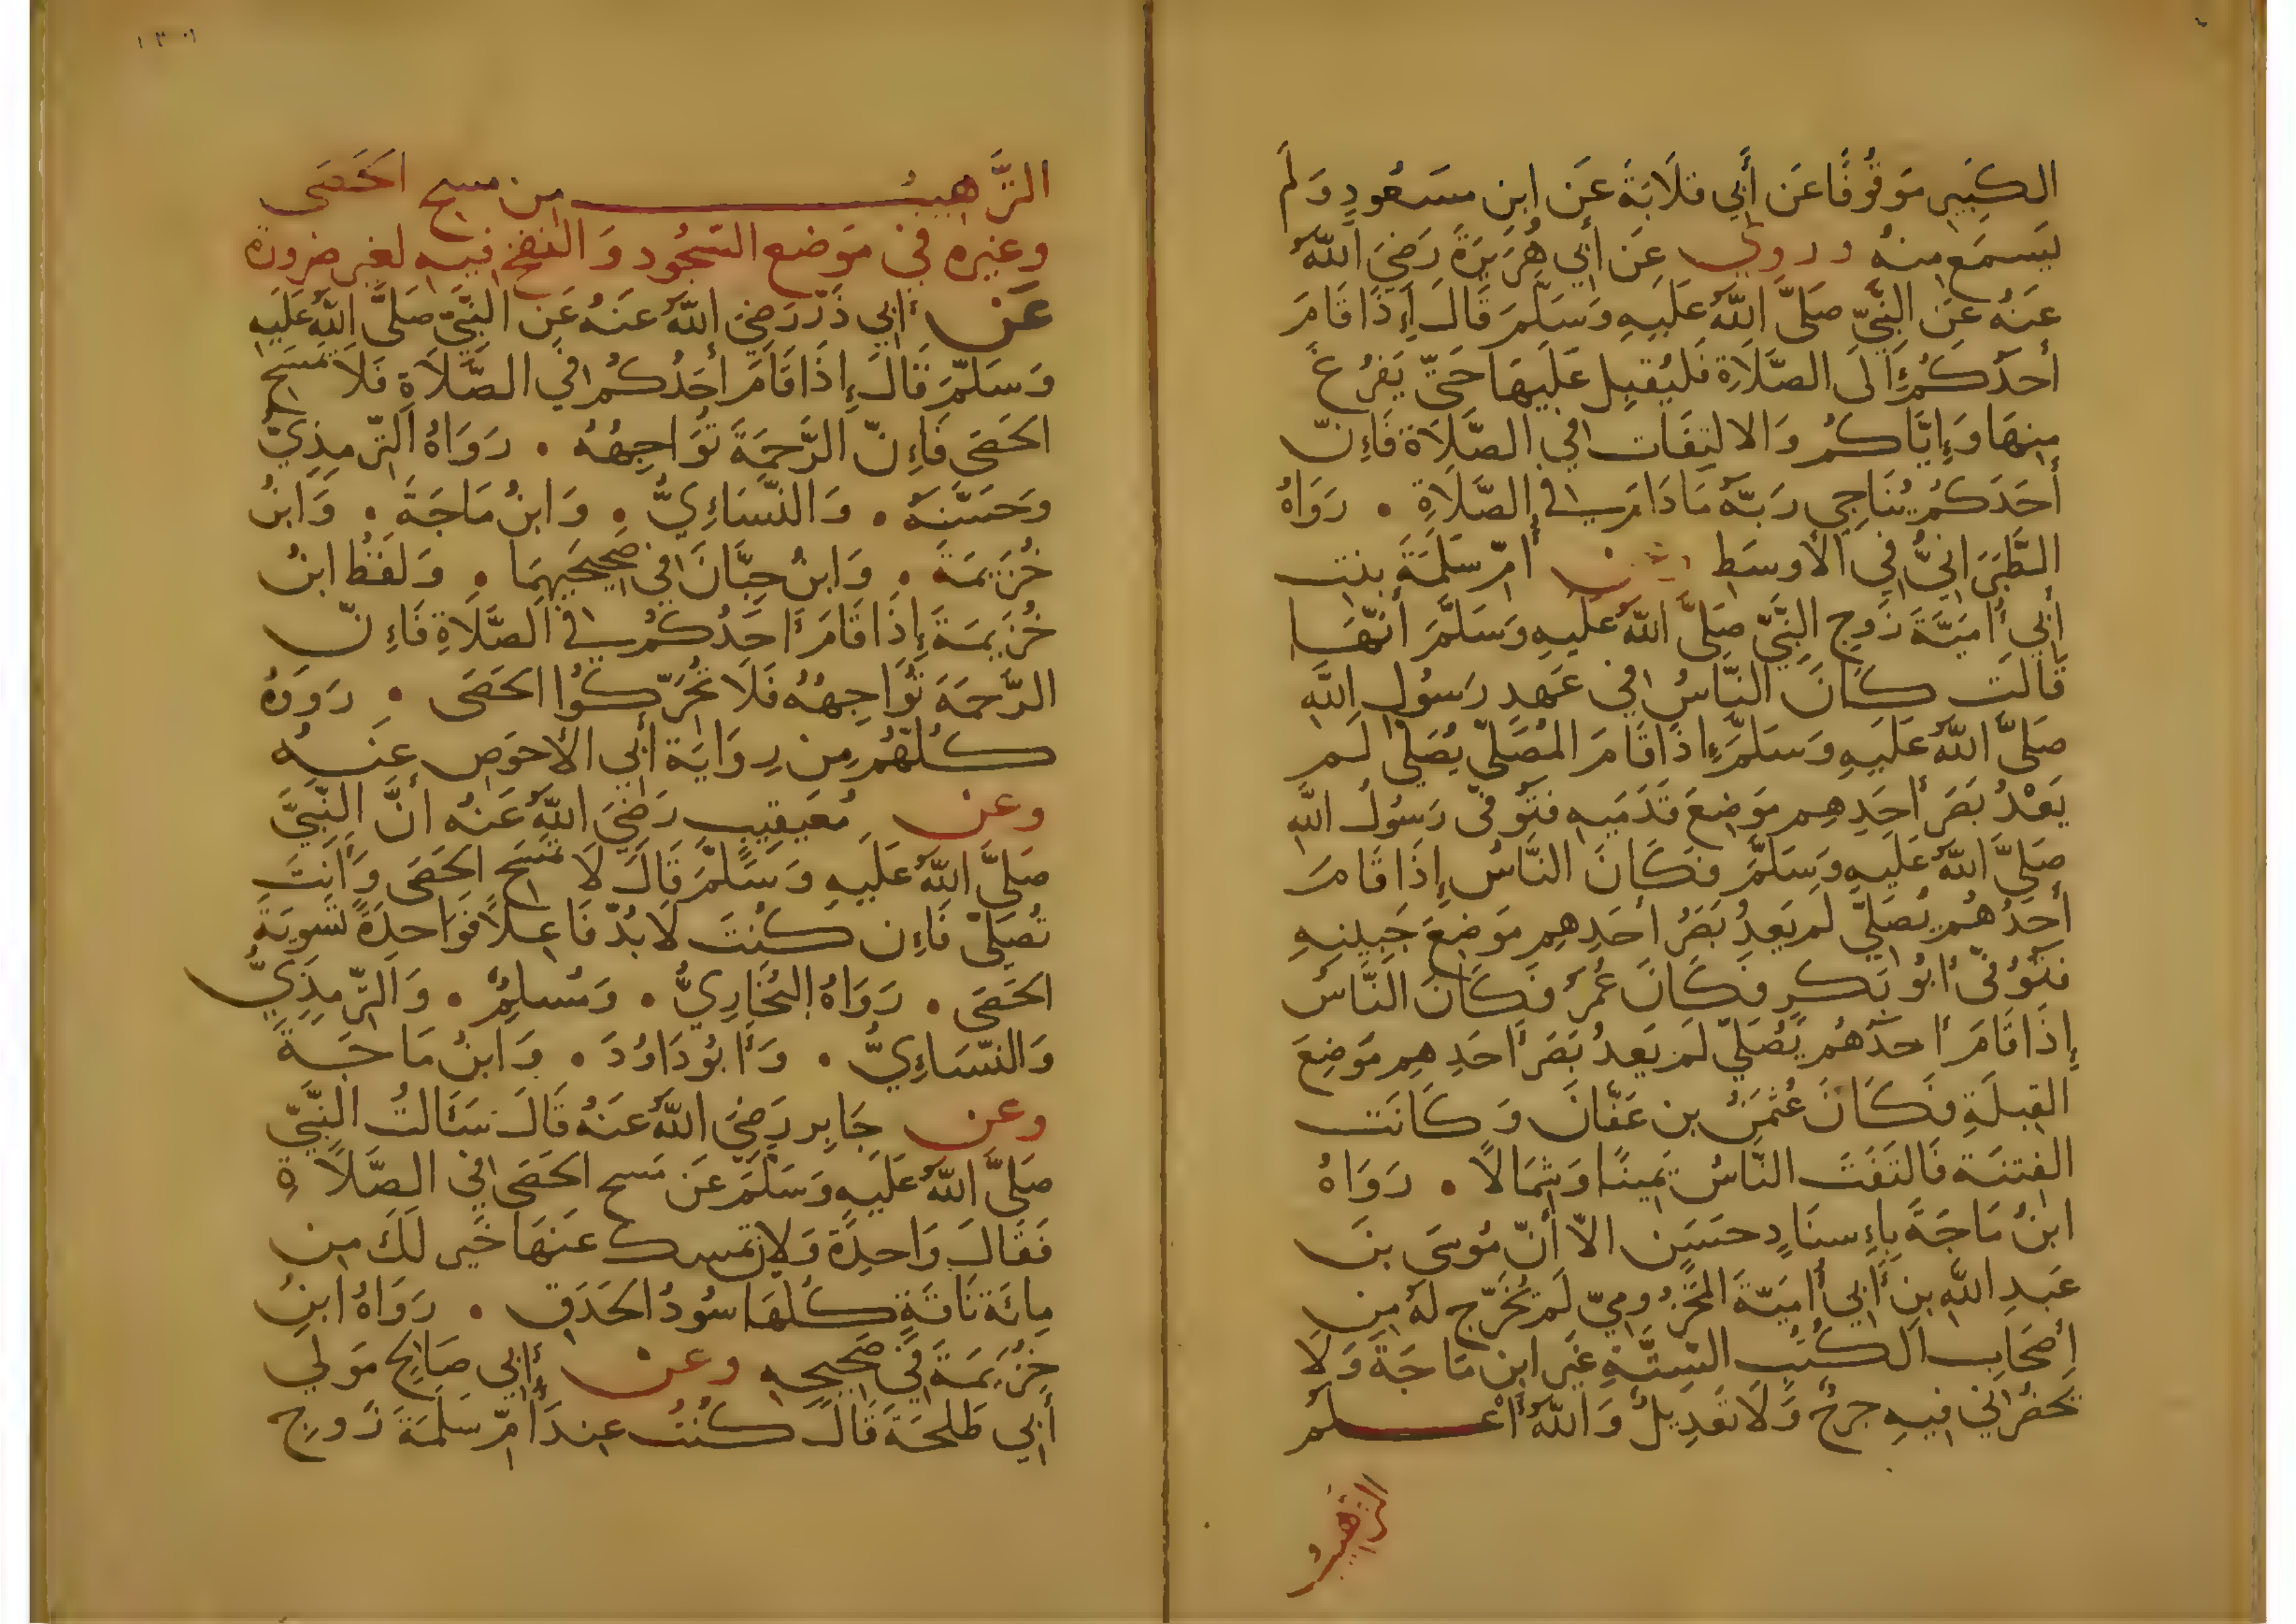 الكَبِيرِ مَوقُوفًا عَن أَبِي قلَابَةَ عَن ابنِ مسَعُودٍ وَلَم
يَسمَع مِنهُ وروي عَن أَبِي هُرَيرَةَ رَضِيَ اللَّهُ
عَنهُ عَن النَّبِيّ صَلَّى اللَّهُ عَلَيهِ وَسَلَّمَ قَالَ إِذَا قَامَ
أَحَدُكُم إِلَى الصَّلَاةِ فَليُقبِل عَلَيهَا حَتّى يَفرُغَ
مِنهَا وَإِيَّاكُم وَالالتِفَات فِي الصَّلَاة فَإِنّ
أَحَدَكُم يُنَاجِي رَبّهُ مَا دَامَ فِي الصَّلَاةِ . رَوَاهُ
الطَّبَرَانِيُّ فِي الأَوسَطِ أُمّ سَلَمَةَ بِنت
أَبِي أُمَيَّةَ زَوجِ النَّبِيّ صَلَّى اللَّهُ عَلَيهِ وَسَلَّمَ أَنّهَا
قَالَت كَانَ النَّاسُ فِي عَهدِ رَسُولِ اللَّهِ
صَلَّى اللَّهُ عَلَيهِ وَسَلَّمَ إِذَا قَامَ المُصَلّي يُصَلّي لَم
يَعْدُ بَصَرُ أَحَدِهِم مَوضِعَ قَدَمَيهِ فَتُوفّي رَسُولُ اللَّهِ
صَلَّى اللَّهُ عَلَيهِ وَسَلَّمَ فَكَانَ النَّاسُ إِذَا قَامَ
أَحَدُهُم يُصَلّي لَم يَعدُ بَصَرُ أَحَدِهِم مَوضِعَ جَبِينِهِ
فَتُوُفّيَ أَبُو بَكرٍ فَكَانَ عُمَرُ فَكَانَ النَّاسُ
إِذَا قَامَ أَحَدُهُم يُصَلّي لَم يَعدُ بَصَرُ أَحَدِهِم مَوضِعَ
القِبلَةِ فَكَانَ عُثمَنُ بن عَفّانَ وَكَانَت
الفِتنَة فَالتَفَتَ النَّاسُ يَمِينًا وَشِمَالًا . رَوَاهُ
ابنُ مَاجَةَ بِإِسنَادٍ حسَنٍ الاّ أَنّ مُوسَى بنَ
عَبدِ اللَّهِ بنِ أَبِي أُمَيَّةَ المَخزُومِيّ لَم يُخَرّج لَهُ مِن
أَصحَابِ الكُتُبِ السِتّةِ غَيرَ ابنِ مَاجَةَ وَلَا
يَحضُرُنِي فِيهِ جرحٌ وَلَا تَعدِيلٌ وَاللَّهُ أَعْلَمُ
الترهيبُ
التَّرهِيبُ مِن مسحِ الحَصَى
وغيره فِي مَوضع السّجُود وَ النفخ فِيهِ لغير ضرورة
عَن أَبِي ذَرّ رَضِيَ اللَّهُ عَنهُ عَنِ النَّبِيّ صَلَّى اللَّهُ عَلَيهِ
وَسَلَّمَ قَالَ إِذَا قَامَ أَحَدُكُم فِي الصَّلَاةِ فَلَا تمسَحِ
الحَصَى فَإِنّ الرَّحمَةَ تُوَاجِهُهُ . رَوَاهُ التّرمِذِيّ
وَحَسّنَهُ . وَالنّسَاءِيُّ . وَابنُ مَاجَةَ . وَابنُ
خُزَيمَةَ . وَابنُ حِبَّانَ فِي صَحِيحَيهِمَا . وَلَفظُ ابنُ
خُزَيمَةَ إِذَا قَامَ أَحَدُكُم فِي الصَّلَاةِ فَإِنّ
الرَّحمَةَ تُوَاجِهُهُ فَلَا تُحَرّكُوا الحَصَى . رَوَوهُ
كُلّهُم مِن رِوَايَةِ أَبِي الأَحوَصِ عَنهُ
وعن مُعَيقِيبٍ رَضِيَ اللَّهُ عَنهُ أَنَّ النَّبِيَّ
صَلَّى اللَّهُ عَلَيهِ وَسَلَّمَ قَالَ لَا تمسَحِ الحَصَى وَأَنتَ
تُصَلّي فَإِن كُنتَ لَا بُدّ فَاعِلًا فَوَاحِدَةً تَسوِيَةَ
الحَصَى . رَوَاهُ البُخَارِيُّ . وَمُسلِمٌ . وَالتّرمِذِيُّ
وَالنّسَاءِيُّ . وَأَبُو دَاوُدَ . وَابنُ مَاجَةَ
وعن جَابِر رَضِيَ اللَّهُ عَنهُ قَالَ سَئَالتُ النَّبِيّ
صَلَّى اللَّهُ عَلَيهِ وَسَلَّمَ عَن مَسحِ الحَصَى فِي الصَّلَاةِ
فَقَالَ وَاحِدَةً وَلَإن تمسِك عَنهَا خَير لَكَ مِن
مِائَة نَاقَةٍ كُلّهَا سُودُ الحَدَقِ . رَوَاهُ ابنُ
خُزَيمَةَ فِي صَحِيحِهِ وعن أَبِي صَالِحٍ مَولَى
أَبِي طَلحَةَ قَالَ كُنتُ عِندَ أُمّ سَلَمَةَ زَوجِ